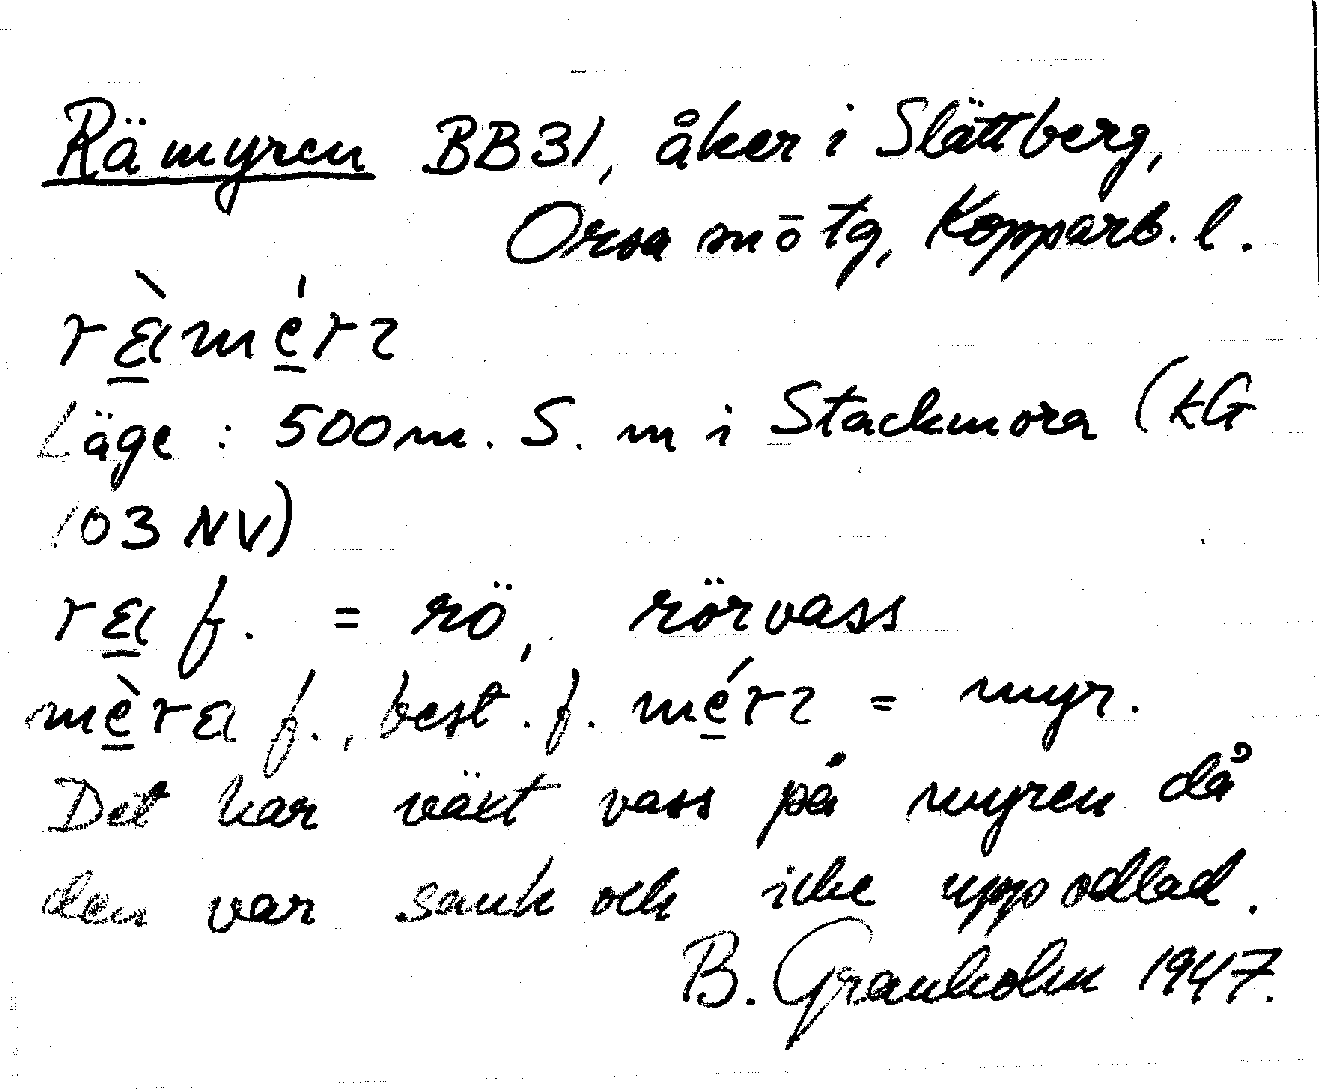 Rämyren BB31, åker i Slättberg,
Orsa sn ō tg, Kopparb. l.
Läge: 500 m. S. m i Stackmora (EG
103 NV)
f. = rö, rörvass
f., best. f. = myr.
Det har växt vass på myren då
den var sank och icke uppodlad.
B. Granholm 1947.